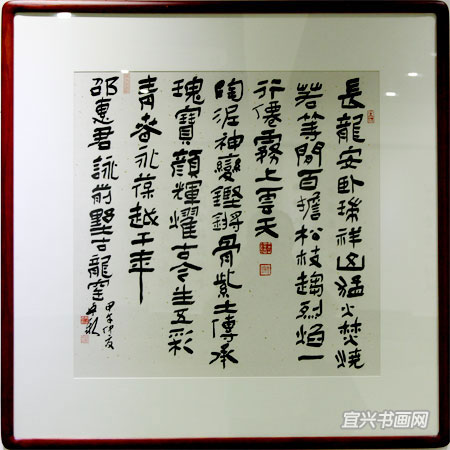 長龍安卧瑞祥山猛火焚燒
若等間百擔松枝趨烈焰一
行僊霧上雲天
陶泥神變鏗鏘骨紫土傳承
瑰寶顏輝耀古今生五彩
青春永葆越千年
邵惠君詠前墅古龍窑
甲午仲夏
宜兴书画网